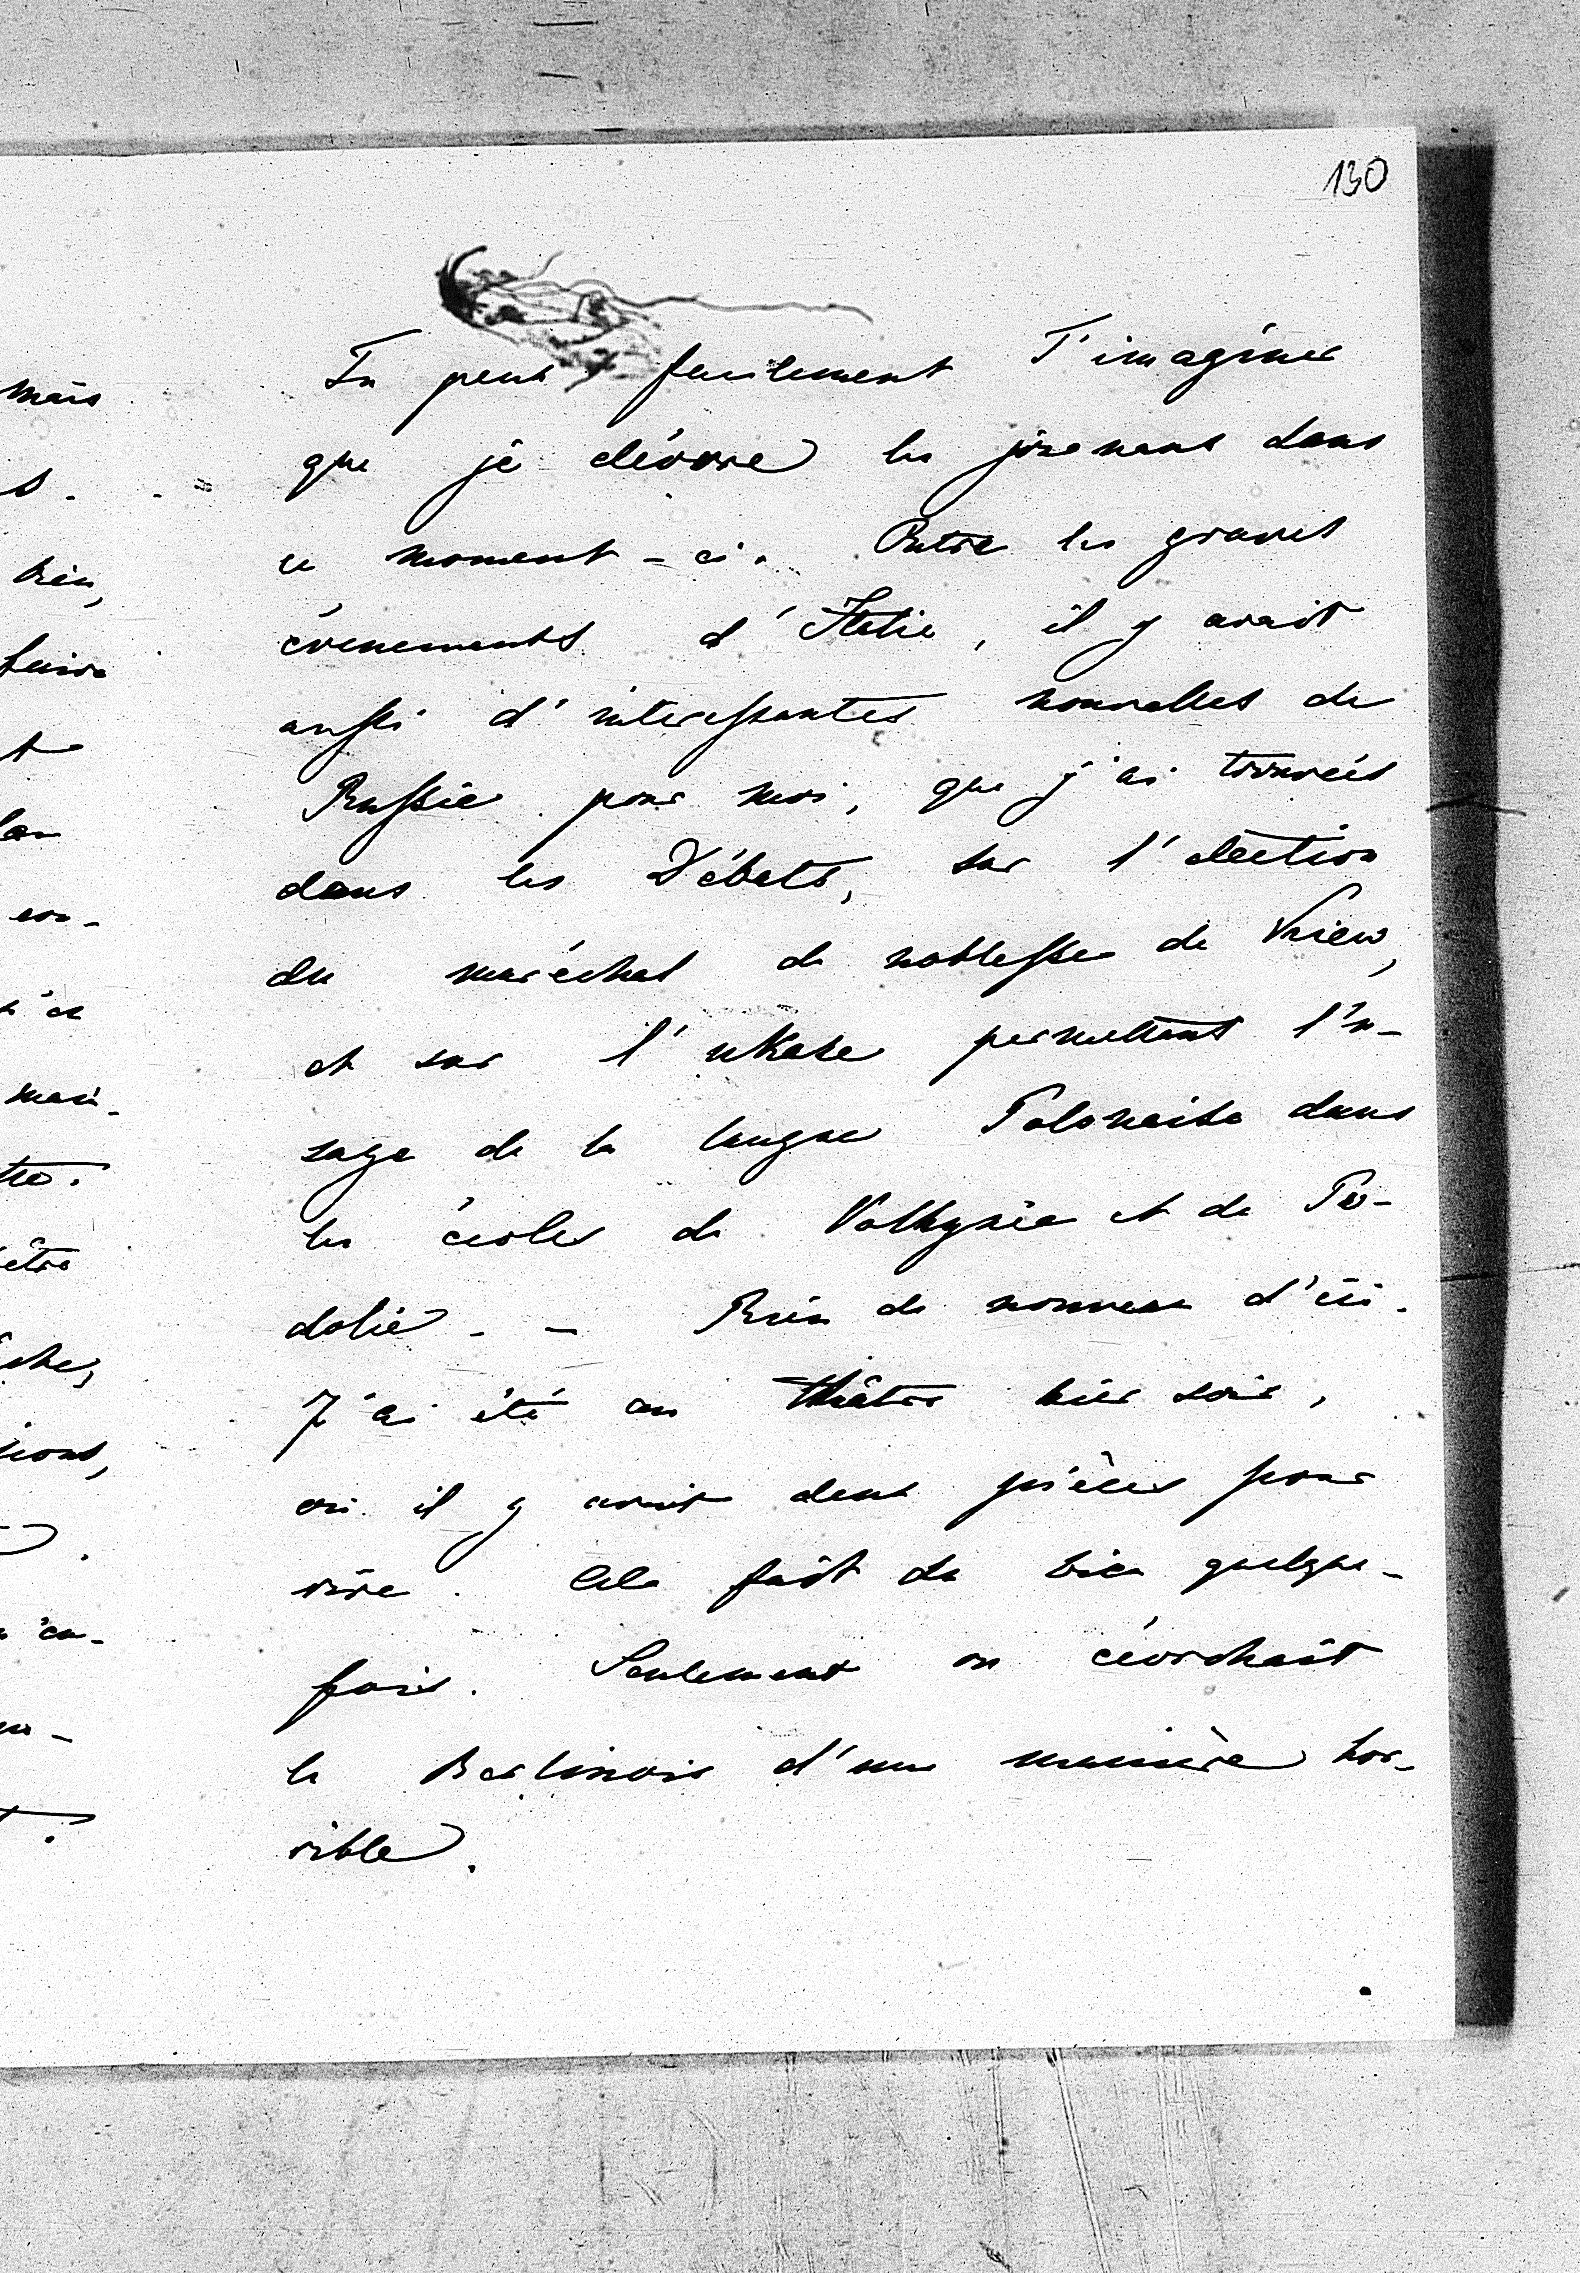 130
Tu peux facilement T'imaginer
que je dévore les journaux dans
ce moment-ci. Outre les graves
évenements d'Italie, il y avait
aussi d'interessantes nouvelles de
Russie pour moi, que j'ai trouvées
dans les Débats, sur l'élection
du maréchal de noblesse de Kiew,
et sur l'ukase permettant l'u-
sage de la langue Polonaise dans
les écoles de Volhynie et de Po-
dolie. - Rien de nouveau d'ici.
J'ai été au théâtre hier soir,
où il y avait deux pièces pour
rire. Cela fait du bien quelque-
fois. Seulement on écorchait
le Berlinois d'une manière hor-
rible.
mais
rien,
faire
con-
être